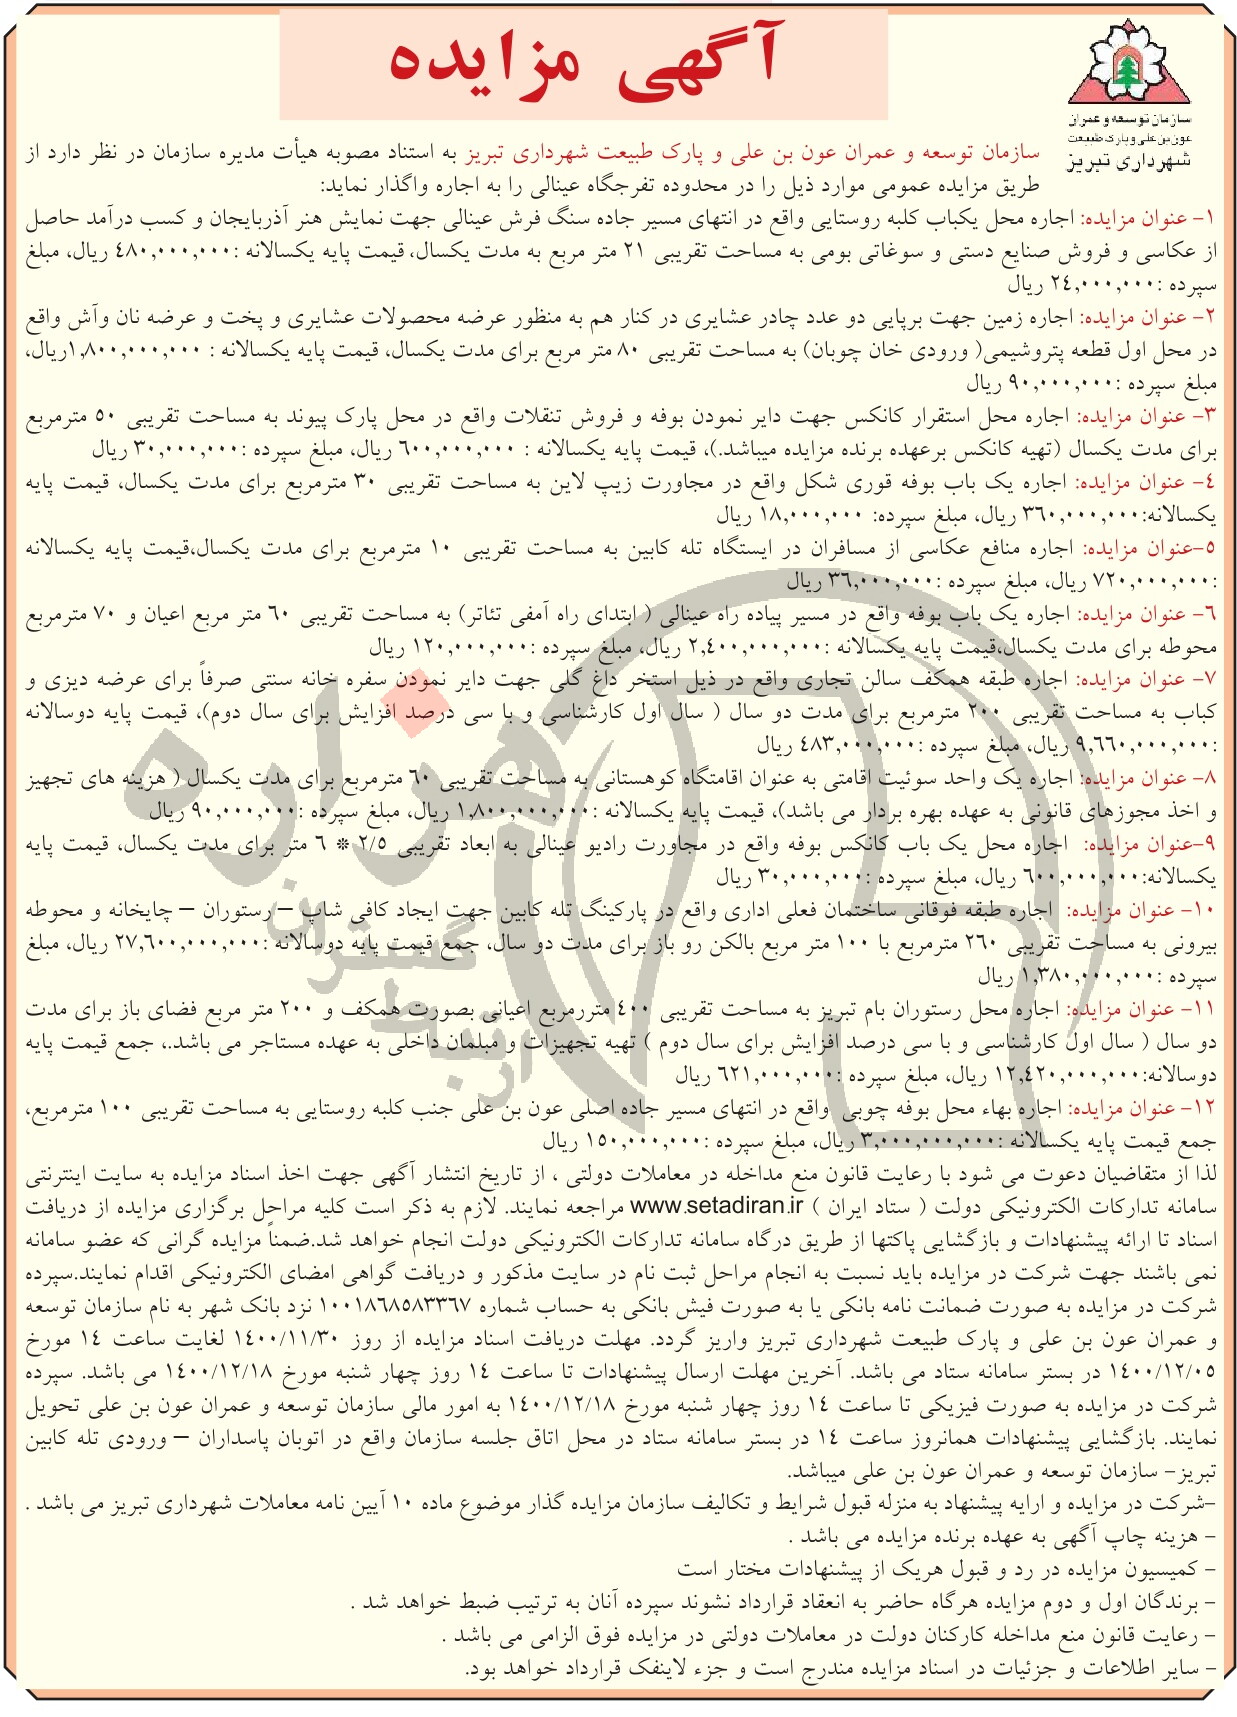 آگهی مزایده
سازمان توسعه و عمران
عون بن علی و پارک طبیعت
شهرداری تبریز
سازمان توسعه و عمران عون بن علی و پارک طبیعت شهرداری تبریز به استناد مصوبه هیأت مدیره سازمان در نظر دارد از
طریق مزایده عمومی موارد ذیل را در محدوده تفرجگاه عینالی را به اجاره واگذار نماید:
۱- عنوان مزایده: اجاره محل یکباب کلبه روستایی واقع در انتهای مسیر جاده سنگ فرش عینالی جهت نمایش هنر آذربایجان و کسب درآمد حاصل
از عکاسی و فروش صنایع دستی و سوغاتی بومی به مساحت تقریبی ۲۱ متر مربع به مدت یکسال، قیمت پایه یکسالانه :۴۸۰,۰۰۰,۰۰۰ ریال، مبلغ
سپرده :۲۴,۰۰۰,۰۰۰ ریال
۲- عنوان مزایده: اجاره زمین جهت برپایی دو عدد چادر عشایری در کنار هم به منظور عرضه محصولات عشایری و پخت و عرضه نان وآش واقع
در محل اول قطعه پتروشیمی( ورودی خان چوبان) به مساحت تقریبی ۸۰ متر مربع برای مدت یکسال، قیمت پایه یکسالانه : ۱,۸۰۰,۰۰۰,۰۰۰ریال،
مبلغ سپرده :۹۰,۰۰۰,۰۰۰ ریال
۳- عنوان مزایده: اجاره محل استقرار کانکس جهت دایر نمودن بوفه و فروش تنقلات واقع در محل پارک پیوند به مساحت تقریبی ۵۰ مترمربع
برای مدت یکسال (تهیه کانکس برعهده برنده مزایده میباشد.)، قیمت پایه یکسالانه : ۶۰۰,۰۰۰,۰۰۰ ریال، مبلغ سپرده :۳۰,۰۰۰,۰۰۰ ریال
۴- عنوان مزایده: اجاره یک باب بوفه قوری شکل واقع در مجاورت زیپ لاین به مساحت تقریبی ۳۰ مترمربع برای مدت یکسال، قیمت پایه
یکسالانه:۳۶۰,۰۰۰,۰۰۰ ریال، مبلغ سپرده: ۱۸,۰۰۰,۰۰۰ ریال
۵-عنوان مزایده: اجاره منافع عکاسی از مسافران در ایستگاه تله کابین به مساحت تقریبی ۱۰ مترمربع برای مدت یکسال،قیمت پایه یکسالانه
:۷۲۰,۰۰۰,۰۰۰ ریال، مبلغ سپرده :۳۶,۰۰۰,۰۰۰ ریال
۶- عنوان مزایده: اجاره یک باب بوفه واقع در مسیر پیاده راه عینالی ( ابتدای راه آمفی تئاتر) به مساحت تقریبی ۶۰ متر مربع اعیان و ۷۰ مترمربع
محوطه برای مدت یکسال،قیمت پایه یکسالانه :۲,۴۰۰,۰۰۰,۰۰۰ ریال، مبلغ سپرده :۱۲۰,۰۰۰,۰۰۰ ریال
۷- عنوان مزایده: اجاره طبقه همکف سالن تجاری واقع در ذیل استخر داغ گلی جهت دایر نمودن سفره خانه سنتی صرفاً برای عرضه دیزی و
کباب به مساحت تقریبی ۲۰۰ مترمربع برای مدت دو سال ( سال اول کارشناسی و با سی درصد افزایش برای سال دوم)، قیمت پایه دوسالانه
:۹,۶۶۰,۰۰۰,۰۰۰ ریال، مبلغ سپرده :۴۸۳,۰۰۰,۰۰۰ ریال
۸- عنوان مزایده: اجاره یک واحد سوئیت اقامتی به عنوان اقامتگاه کوهستانی به مساحت تقریبی ۶۰ مترمربع برای مدت یکسال ( هزینه های تجهیز
و اخذ مجوزهای قانونی به عهده بهره بردار می باشد)، قیمت پایه یکسالانه :۱,۸۰۰,۰۰۰,۰۰۰ ریال، مبلغ سپرده :۹۰,۰۰۰,۰۰۰ ریال
۹-عنوان مزایده: اجاره محل یک باب کانکس بوفه واقع در مجاورت رادیو عینالی به ابعاد تقریبی ۲/۵ * ۶ متر برای مدت یکسال، قیمت پایه
یکسالانه:۶۰۰,۰۰۰,۰۰۰ ریال، مبلغ سپرده :۳۰,۰۰۰,۰۰۰ ریال
۱۰- عنوان مزایده: اجاره طبقه فوقانی ساختمان فعلی اداری واقع در پارکینگ تله کابین جهت ایجاد کافی شاپ – رستوران – چایخانه و محوطه
بیرونی به مساحت تقریبی ۲۶۰ مترمربع با ۱۰۰ متر مربع بالکن رو باز برای مدت دو سال، جمع قیمت پایه دوسالانه :۲۷,۶۰۰,۰۰۰,۰۰۰ ریال، مبلغ
سپرده :۱,۳۸۰,۰۰۰,۰۰۰ ریال
۱۱- عنوان مزایده: اجاره محل رستوران بام تبریز به مساحت تقریبی ۴۰۰ متررمربع اعیانی بصورت همکف و ۲۰۰ متر مربع فضای باز برای مدت
دو سال ( سال اول کارشناسی و با سی درصد افزایش برای سال دوم ) تهیه تجهیزات و مبلمان داخلی به عهده مستاجر می باشد.، جمع قیمت پایه
دوسالانه:۱۲,۴۲۰,۰۰۰,۰۰۰ ریال، مبلغ سپرده :۶۲۱,۰۰۰,۰۰۰ ریال
۱۲- عنوان مزایده: اجاره بهاء محل بوفه چوبی واقع در انتهای مسیر جاده اصلی عون بن علی جنب کلبه روستایی به مساحت تقریبی ۱۰۰ مترمربع،
جمع قیمت پایه یکسالانه :۳,۰۰۰,۰۰۰,۰۰۰ ریال، مبلغ سپرده :۱۵۰,۰۰۰,۰۰۰ ریال
لذا از متقاضیان دعوت می شود با رعایت قانون منع مداخله در معاملات دولتی ، از تاریخ انتشار آگهی جهت اخذ اسناد مزایده به سایت اینترنتی
سامانه تدارکات الکترونیکی دولت ( ستاد ایران ) www.setadiran.ir مراجعه نمایند. لازم به ذکر است کلیه مراحل برگزاری مزایده از دریافت
اسناد تا ارائه پیشنهادات و بازگشایی پاکتها از طریق درگاه سامانه تدارکات الکترونیکی دولت انجام خواهد شد.ضمناً مزایده گرانی که عضو سامانه
نمی باشند جهت شرکت در مزایده باید نسبت به انجام مراحل ثبت نام در سایت مذکور و دریافت گواهی امضای الکترونیکی اقدام نمایند.سپرده
شرکت در مزایده به صورت ضمانت نامه بانکی یا به صورت فیش بانکی به حساب شماره ۱۰۰۱۸۶۸۵۸۳۳۶۷ نزد بانک شهر به نام سازمان توسعه
و عمران عون بن علی و پارک طبیعت شهرداری تبریز واریز گردد. مهلت دریافت اسناد مزایده از روز ۱۴۰۰/۱۱/۳۰ لغایت ساعت ۱۴ مورخ
۱۴۰۰/۱۲/۰۵ در بستر سامانه ستاد می باشد. آخرین مهلت ارسال پیشنهادات تا ساعت ۱۴ روز چهار شنبه مورخ ۱۴۰۰/۱۲/۱۸ می باشد. سپرده
شرکت در مزایده به صورت فیزیکی تا ساعت ۱۴ روز چهار شنبه مورخ ۱۴۰۰/۱۲/۱۸ به امور مالی سازمان توسعه و عمران عون بن علی تحویل
نمایند. بازگشایی پیشنهادات همانروز ساعت ۱۴ در بستر سامانه ستاد در محل اتاق جلسه سازمان واقع در اتوبان پاسداران – ورودی تله کابین
تبریز- سازمان توسعه و عمران عون بن علی میباشد.
-شرکت در مزایده و ارایه پیشنهاد به منزله قبول شرایط و تکالیف سازمان مزایده گذار موضوع ماده ۱۰ آیین نامه معاملات شهرداری تبریز می باشد .
- هزینه چاپ آگهی به عهده برنده مزایده می باشد .
- کمیسیون مزایده در رد و قبول هریک از پیشنهادات مختار است
- برندگان اول و دوم مزایده هرگاه حاضر به انعقاد قرارداد نشوند سپرده آنان به ترتیب ضبط خواهد شد .
- رعایت قانون منع مداخله کارکنان دولت در معاملات دولتی در مزایده فوق الزامی می باشد .
- سایر اطلاعات و جزئیات در اسناد مزایده مندرج است و جزء لاینفک قرارداد خواهد بود.
هزاره